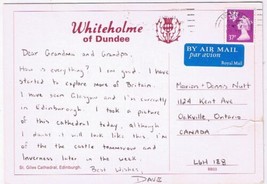 Whiteholme
of Dundee
Dear Grandma and Grandpa,
How is everything? I am good. I have
started to explore more of Britain.
I have seen Glasgow and I'm currently
in Edinburgh. I took a picture
of this cathedral today, although
I doubt it will look like this. I'm
off to the castle tomorrow and
Inverness later in the week.
Best Wishes,
Dave
St. Giles Cathedral, Edinburgh.
BY AIR MAIL
par avion
Royal Mail
Marion + Dennis Nutt
1124 Kent Ave
Oakville, Ontario
CANADA